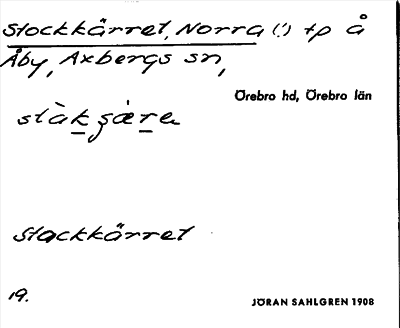 Stockkärret, Norra (!) tp å
Åby, Axbergs sn,
Örebro hd, Örebro län
stàkʂæ̀ra
Stackkärret
19.
JÖRAN SAHLGREN 1908